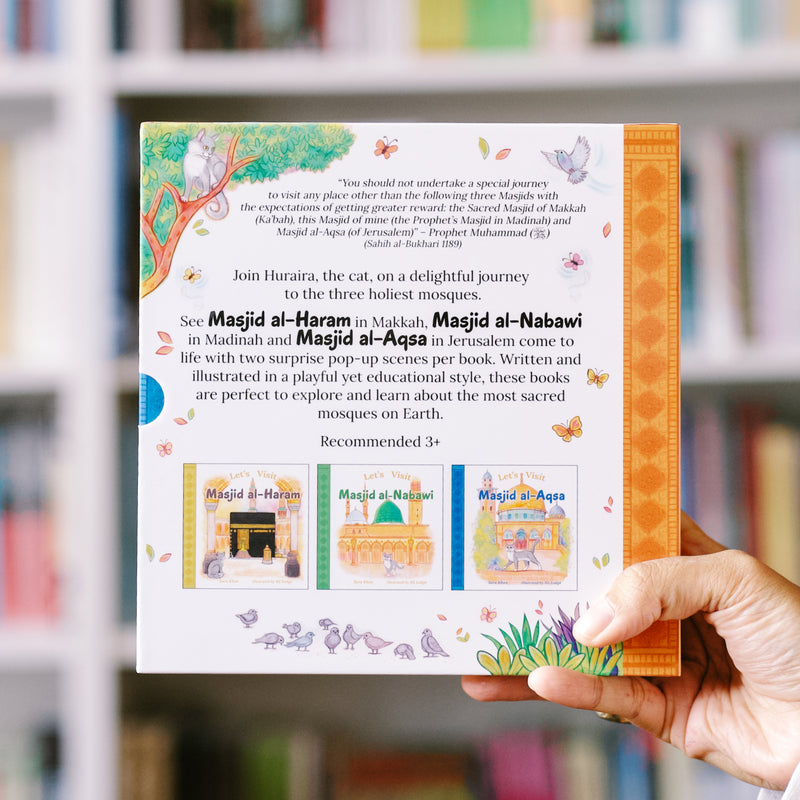 “You should not undertake a special journey
to visit any place other than the following three Masjids with
the expectations of getting greater reward: the Sacred Masjid of Makkah
(Ka'bah), this Masjid of mine (the Prophet's Masjid in Madinah) and
Masjid al-Aqsa (of Jerusalem)” – Prophet Muhammad (ﷺ)
(Sahih al-Bukhari 1189)
Join Huraira, the cat, on a delightful journey
to the three holiest mosques.
See Masjid al-Haram in Makkah, Masjid al-Nabawi
in Madinah and Masjid al-Aqsa in Jerusalem come to
life with two surprise pop-up scenes per book. Written and
illustrated in a playful yet educational style, these books
are perfect to explore and learn about the most sacred
mosques on Earth.
Recommended 3+
Let's Visit
Masjid al-Haram
Let's Visit
Masjid al-Nabawi
Let's Visit
Masjid al-Aqsa